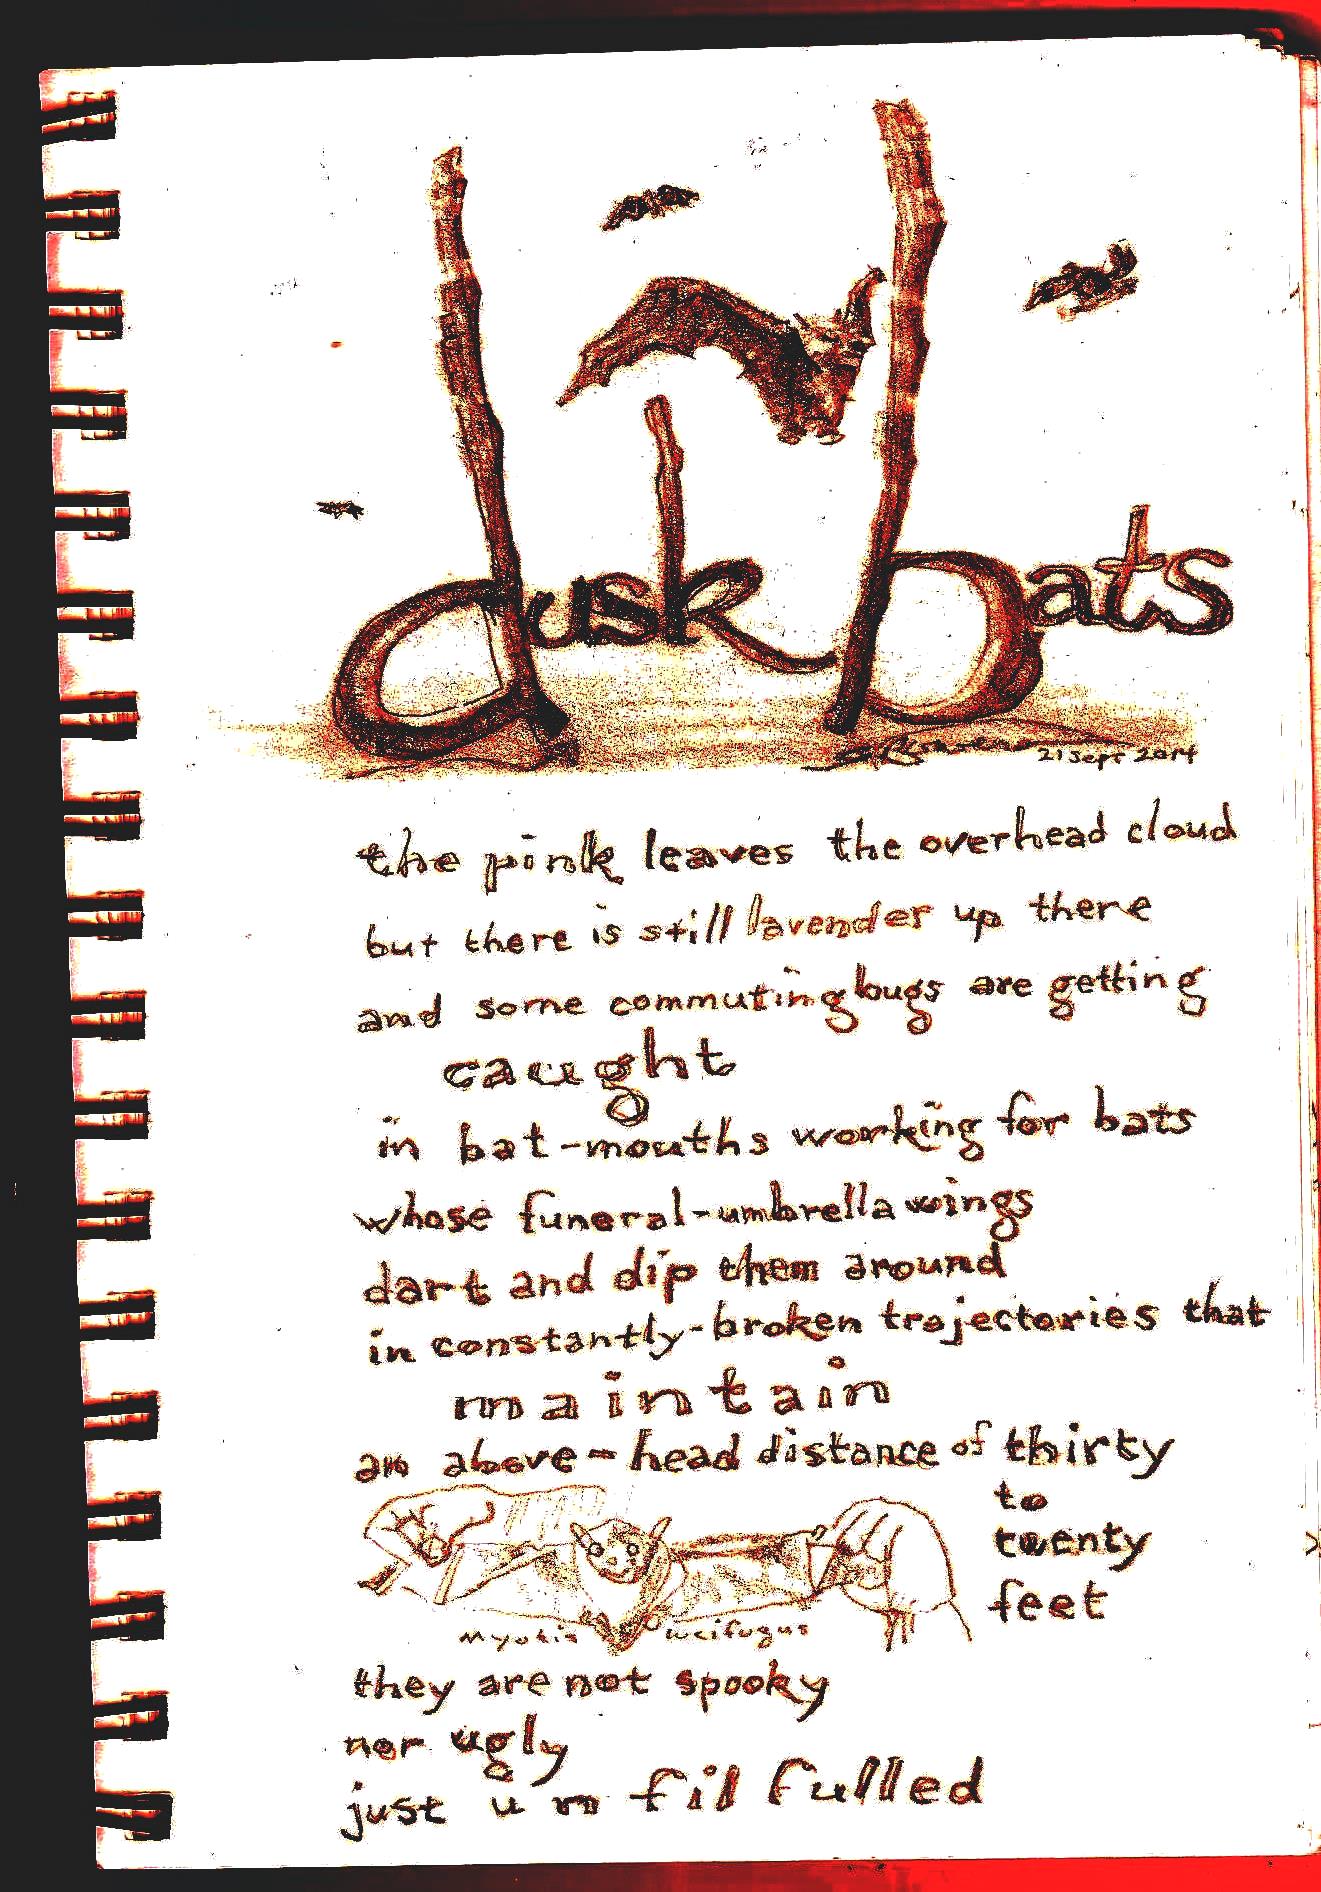 dusk bats
21 Sept 2014
the pink leaves the overhead cloud
but there is still lavender up there
and some commuting bugs are getting
caught
in bat-mouths working for bats
whose funeral-umbrella wings
dart and dip them around
in constantly-broken trajectories that
maintain
an above-head distance of thirty
to
twenty
feet
Myotis lucifugus
they are not spooky
nor ugly
just unfilfulled